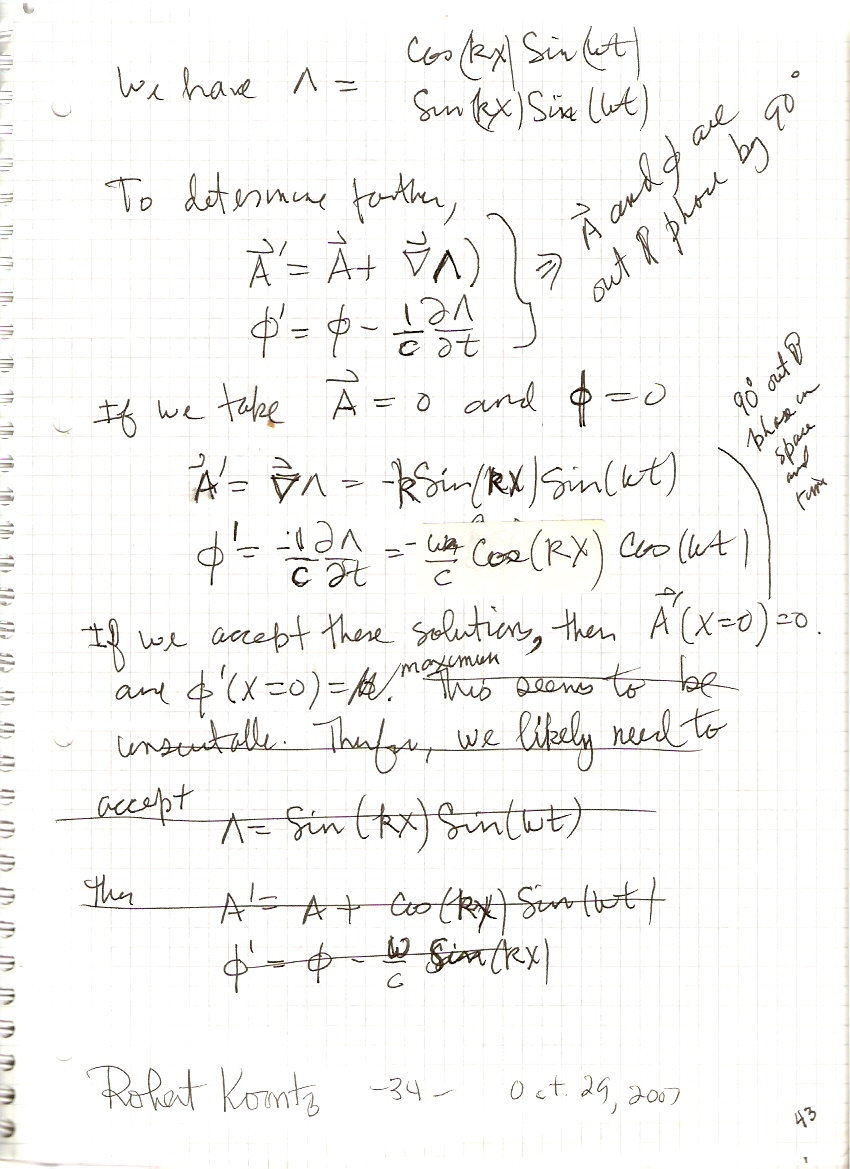 We have Λ = Cos(kx) Sin(ωt)
Sin(kx) Sin(ωt)
To determine further,
A⃗' = A⃗ + ∇⃗Λ)
ϕ' = ϕ - 1/c ∂Λ/∂t
⇒ A⃗ and ϕ are
out of phase by 90°
If we take A⃗ = 0 and ϕ = 0
A⃗' = ∇⃗Λ = -k Sin(kx) Sin(ωt)
ϕ' = -1/c ∂Λ/∂t = - ω/c Cos(kx) Cos(ωt)
90° out of
phase in
space
and
time
If we accept these solutions, then A⃗'(x=0)=0.
and ϕ'(x=0) = maximum. This seems to be
unsuitable. Therefore, we likely need to
accept
Λ = Sin(kx) Sin(ωt)
Then A' = A + Cos(kx) Sin(ωt)
ϕ' = ϕ - ω/c Sin(kx)
Robert Koontz -34- Oct. 29, 2007
43